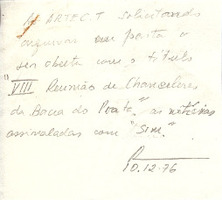 ARTEC.T solicitando
arquivar em pasta "
ser aberta com o título
"VIII Reunião de Chanceleres
da Bacia do Prata", as notícias
assinaladas com "SIM".
10.12.76